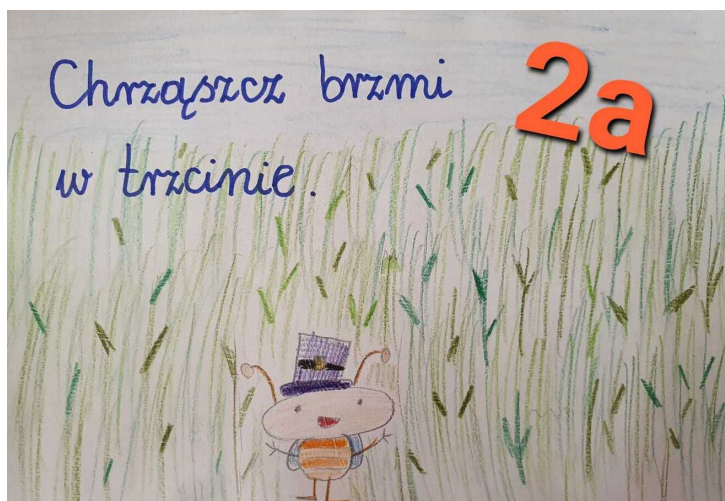 Chrząszcz brzmi
2a
w trzcinie.